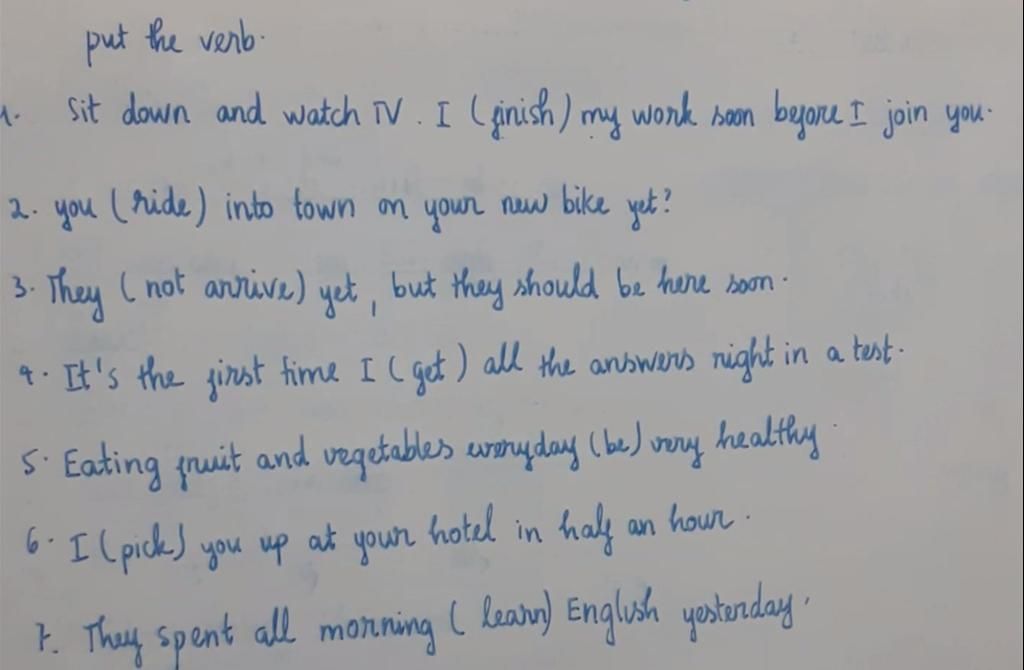 put the verb.
1. Sit down and watch TV. I (finish) my work soon before I join you.
2. you (ride) into town on your new bike yet?
3. They (not arrive) yet, but they should be here soon.
4. It's the first time I (get) all the answers right in a test.
5. Eating fruit and vegetables everyday (be) very healthy.
6. I (pick) you up at your hotel in half an hour.
7. They spent all morning (learn) English yesterday.